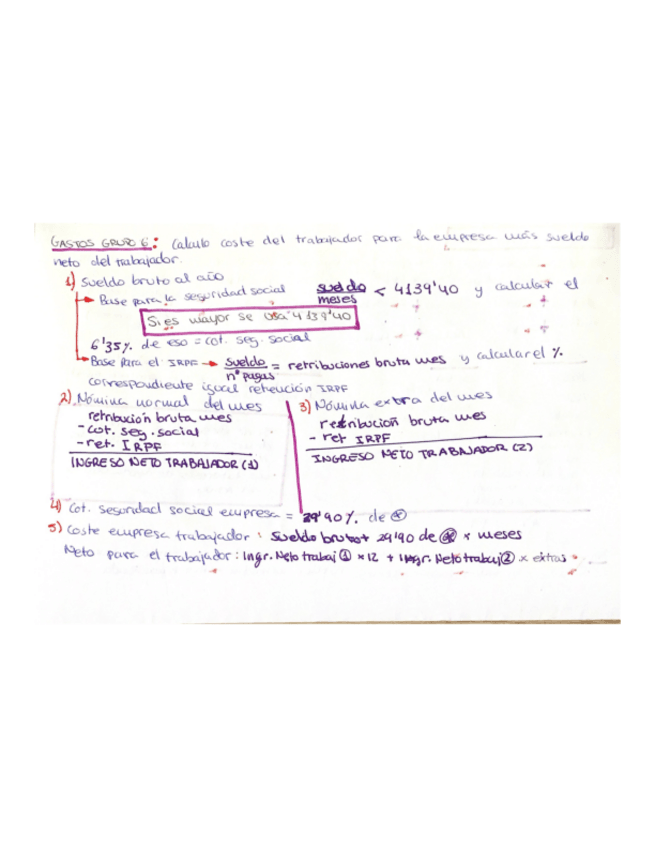 GASTOS GRUPO 6: Calculo coste del trabajador para la empresa más sueldo
neto del trabajador.
1) Sueldo bruto al año
Base para la seguridad social sueldo/meses < 4139'40 y calcular el
Si es mayor se usa 4139'40
6'35% de eso = cot. seg. social
Base para el IRPF → sueldo/nº pagas = retribuciones bruta mes y calcular el %
correspondiente igual retención IRPF
2) Nómina normal del mes
retribución bruta mes
- cot. seg. social
- ret. IRPF
INGRESO NETO TRABAJADOR (1)
3) Nómina extra del mes
retribución bruta mes
- ret IRPF
INGRESO NETO TRABAJADOR (2)
4) Cot. seguridad social empresa = 29'90% de *
5) Coste empresa trabajador: sueldo bruto + 29'90 de * x meses
Neto para el trabajador: Ingr. Neto trabaj ① x 12 + Ingr. Neto trabaj ② x extras